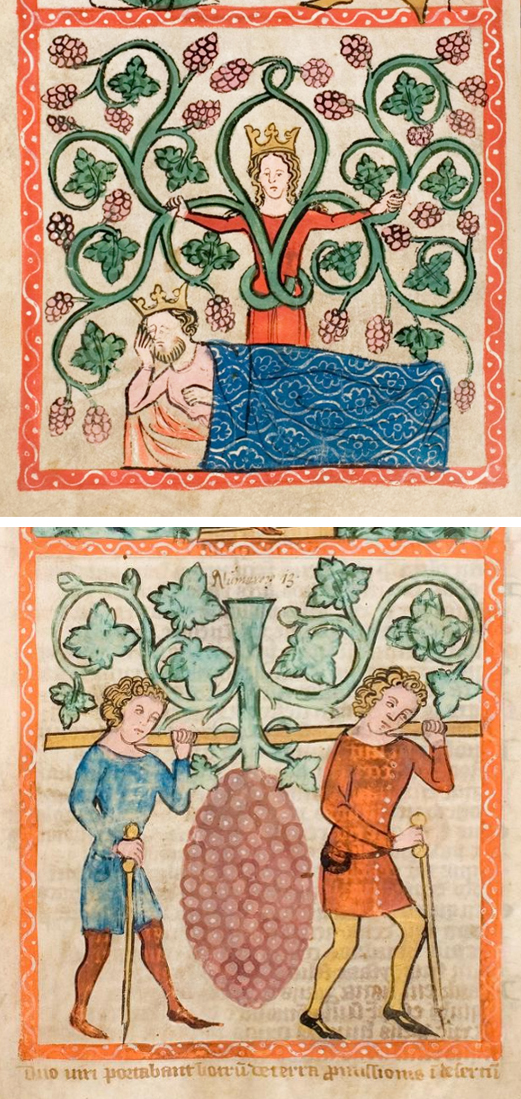 Numeroꝝ 13
Duo uiri portabant botrũ de terra ꝓmissionis ĩ desertũ